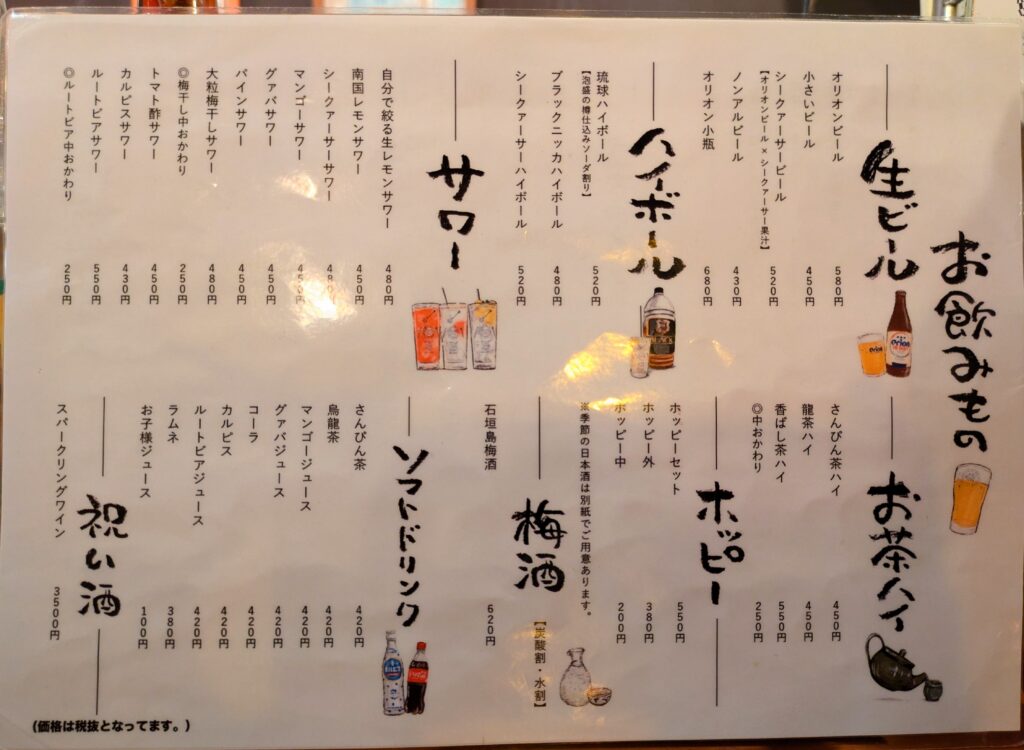 お飲みもの
生ビール
オリオンビール 580円
小さいビール 450円
シークァーサービール 520円
【オリオンビール×シークァーサー果汁】
ノンアルビール 430円
オリオン小瓶 680円
ハイボール
琉球ハイボール 520円
【泡盛の樽仕込みソーダ割り】
ブラックニッカハイボール 480円
シークァーサーハイボール 520円
サワー
自分で絞る生レモンサワー 480円
南国レモンサワー 450円
シークァーサーサワー
マンゴーサワー 450円
グァバサワー 450円
パインサワー 450円
大粒梅干しサワー 480円
◎梅干し中おかわり 250円
トマト酢サワー 450円
カルピスサワー 430円
ルートビアサワー 550円
◎ルートビア中おかわり 250円
お茶ハイ
さんぴん茶ハイ 450円
龍茶ハイ 450円
香ばし茶ハイ 550円
◎中おかわり 250円
ホッピー
ホッピーセット 550円
ホッピー外 380円
ホッピー中 200円
※季節の日本酒は別紙でご用意あります。
梅酒
【炭酸割・水割】
石垣島梅酒 620円
ソフトドリンク
さんぴん茶 420円
烏龍茶 420円
マンゴージュース 420円
グァバジュース 420円
コーラ 420円
カルピス 420円
ルートビアジュース 420円
ラムネ 380円
お子様ジュース 100円
祝い酒
スパークリングワイン 3500円
(価格は税抜となってます。)